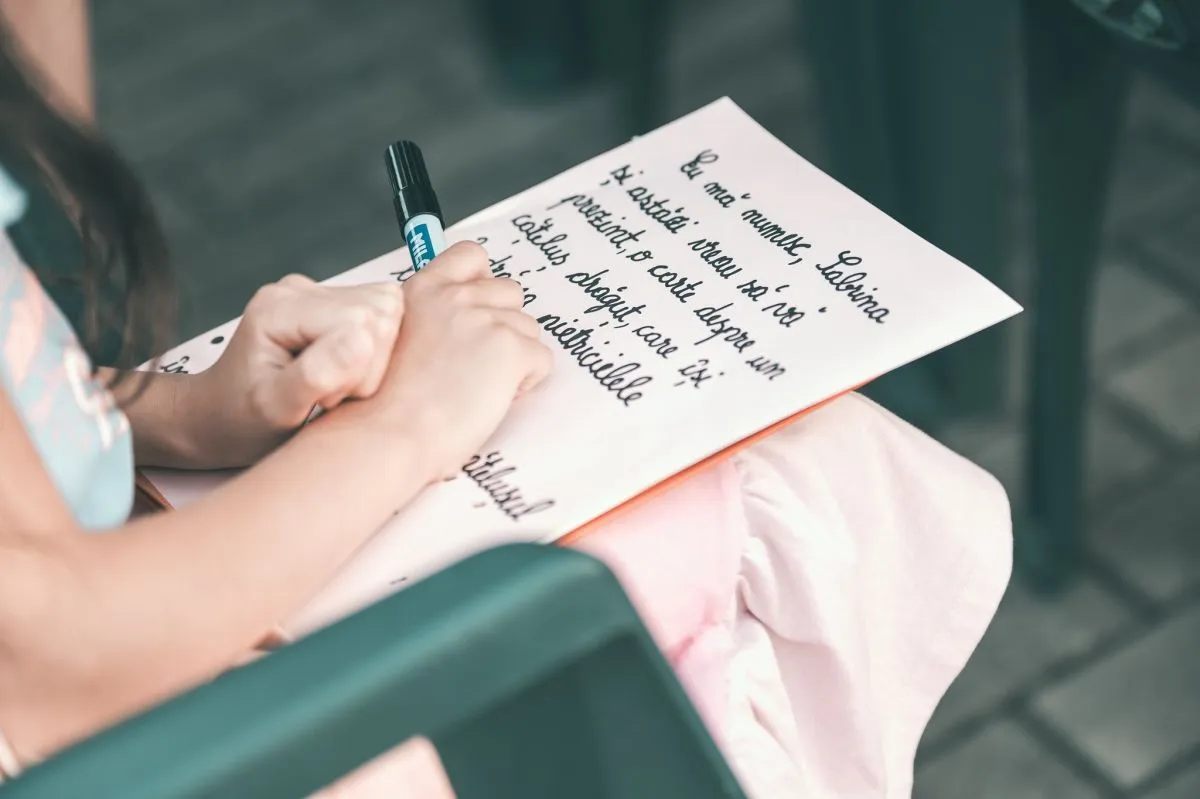 Eu mă numesc, Sabrina
și astăzi vreau să vă
prezint, o carte despre un
cățeluș drăguț, care își
pietricelele
în